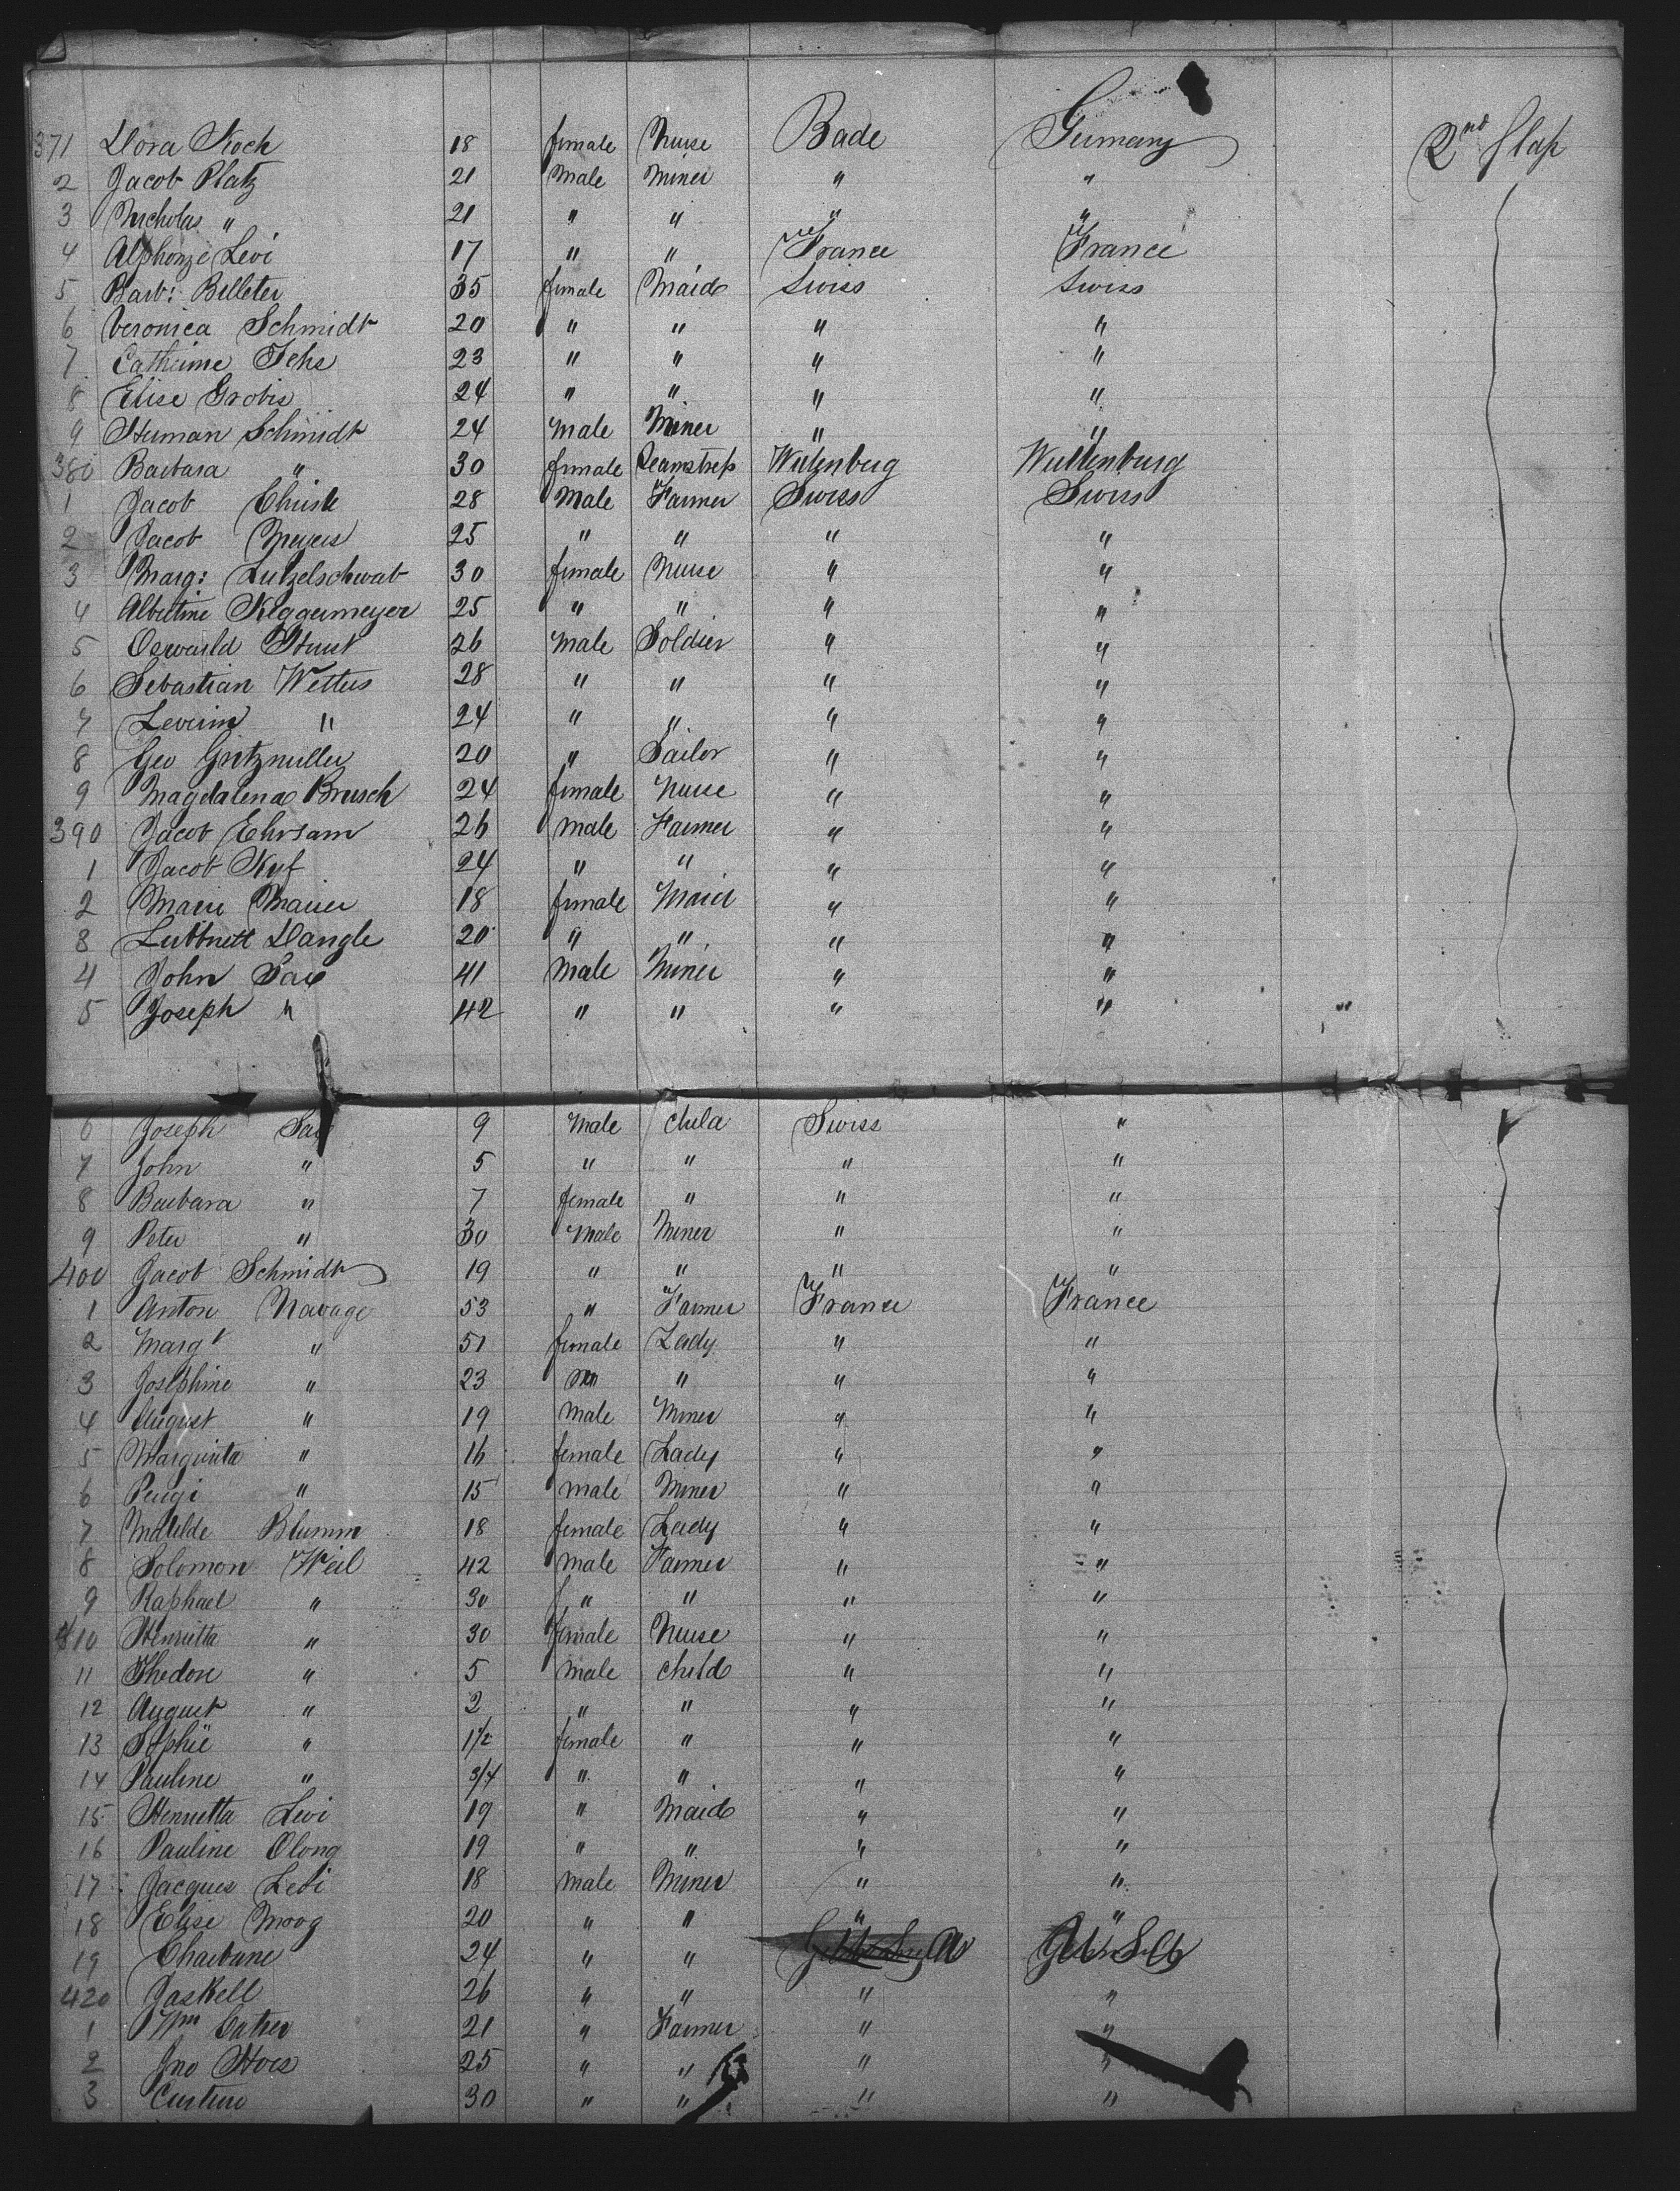 371 Dora Koch 18 female Nurse Bade Germany 2nd Clap
2 Jacob Platz 21 Male Miner " "
3 Nicholas " 21 " " " "
4 Alphonze Levi 17 " " France France
5 Barb: Belleter 35 female Maid Swiss Swiss
6 Veronica Schmidt 20 " " " "
7 Catherine 23 " " " "
8 Elise Grobis 24 " " " "
9 Herman Schmidt 24 Male Miner " "
380 Barbara " 30 female Seamstress Wirtenberg Wurtenburg
1 Jacob Christe 28 Male Farmer Swiss Swiss
2 Jacob Meyers 25 " " " "
3 Marg: Lutzelschwab 30 female Nurse " "
4 Albertine Keggermeyer 25 " " " "
5 Oswald 26 Male Soldier " "
6 Sebastian Wetters 28 " " " "
7 Leverin " 24 " " " "
8 Geo Gretzmuller 20 " Sailor " "
9 Magdalena Brusch 24 female Nurse " "
390 Jacob Ehrsam 26 male Farmer " "
1 Jacob Kyf 24 " " " "
2 Marie Maurer 18 female Maid " "
3 Dangle 20 " " " "
4 John Sax 41 Male Miner " "
5 Joseph " 42 " " " " "
6 Joseph Sax 9 Male child Swiss "
7 John " 5 " " " "
8 Barbara " 7 female " " "
9 Peter " 30 Male Miner " "
400 Jacob Schmidt 19 " " " "
1 Anton Navage 53 " Farmer France France
2 Margt " 51 female Lady " "
3 Josephine " 23 " " "
4 August " 19 Male Miner " "
5 Marguirita " 16 female Lady " "
6 " 15 male Miner " "
7 Matilde Blumm 18 female Lady " "
8 Solomon Weil 42 male Farmer " "
9 Raphael " 30 " " " "
410 Henrietta " 30 female Nurse " "
11 Thedon " 5 male child " "
12 August " 2 " " " "
13 Sophie " 1 1/2 female " " "
14 Pauline " 3/4 " " " "
15 Henrietta Levi 19 " Maid " "
16 Pauline Olong 19 " " " "
17 Jacques Levi 18 male Miner " "
18 Elise Moog 20 " " " "
19 Charbane 24 " "
420 Jaskell 26 " " " "
1 Wm Cater 21 " Farmer " "
2 Jno Hoes 25 " " " "
3 30 " " " "